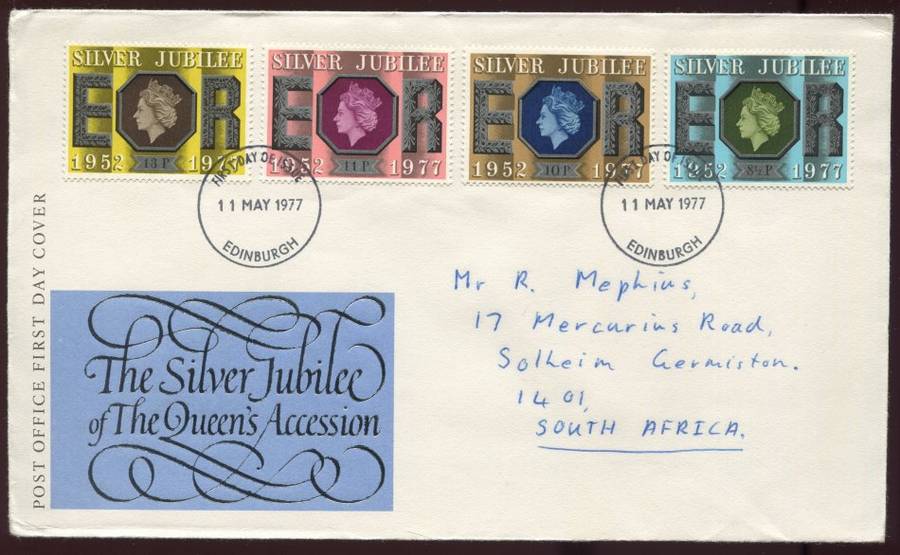 SILVER JUBILEE
E R
1952 13P 1977
SILVER JUBILEE
E R
1952 11P 1977
SILVER JUBILEE
E R
1952 10P 1977
SILVER JUBILEE
E R
1952 8½P 1977
FIRST DAY OF ISSUE
11 MAY 1977
EDINBURGH
FIRST DAY OF ISSUE
11 MAY 1977
EDINBURGH
POST OFFICE FIRST DAY COVER
The Silver Jubilee
of The Queen's Accession
Mr R. Mephius,
17 Mercurius Road,
Solheim Germiston.
1401,
SOUTH AFRICA.